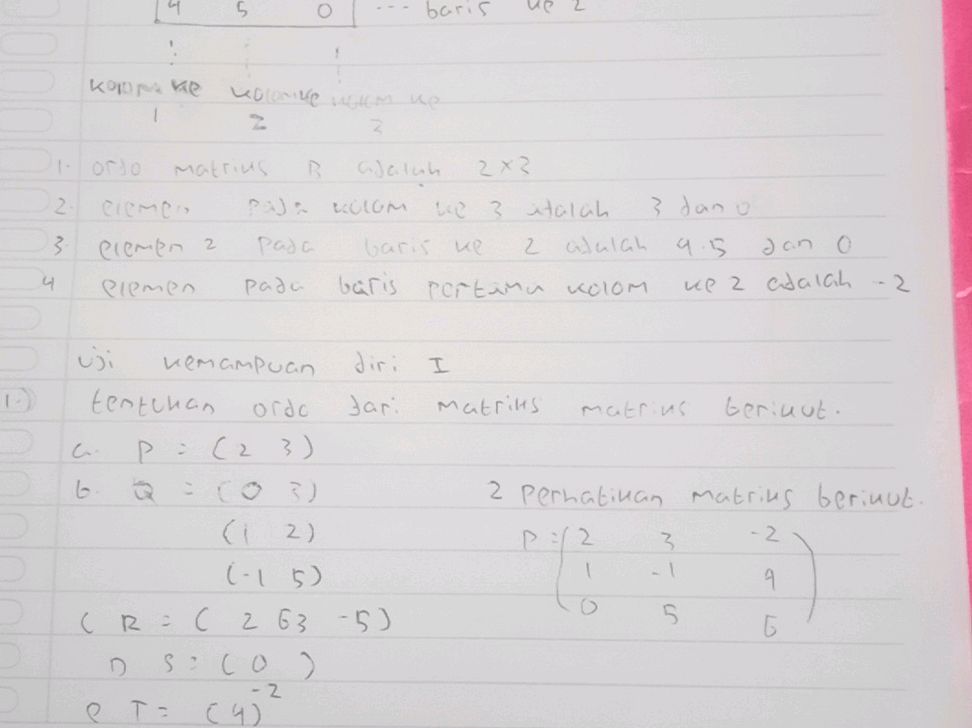 4 5 0 ... baris ke 2
kolom ke kolom ke kolom ke
1 2 3
1. ordo matriks B adalah 2×3
2. elemen pada kolom ke 3 adalah 3 dan 0
3. elemen 2 pada baris ke 2 adalah 4.5 dan 0
4 elemen pada baris pertama kolom ke 2 adalah -2
Uji kemampuan diri I
1.) tentukan ordo dari matriks matriks berikut.
a. P = (2 3)
b. Q = (0 3)
(1 2)
(-1 5)
C R = ( 2 6 3 -5)
D S = (0 )
e T = (4)-2
2 Perhatikan matriks berikut.
P = ( 2 3 -2 )
1 -1 9
0 5 6